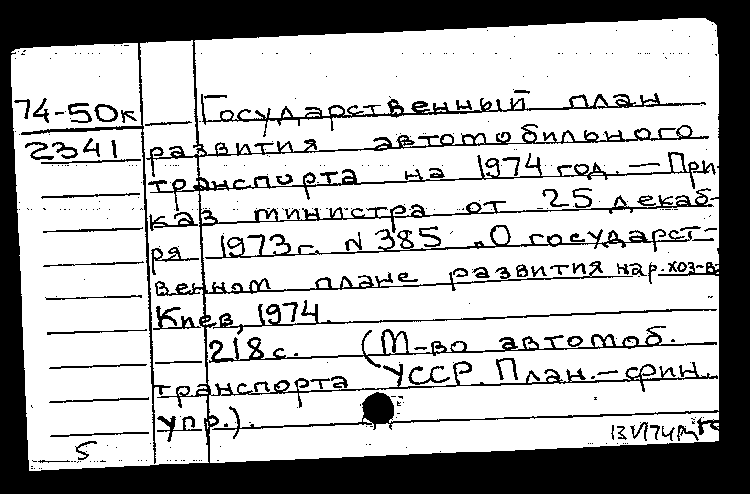 74-50к Государственный план
2341 развития автомобильного
транспорта на 1974 год. — При-
каз министра от 25 декаб-
ря 1973 г. N 385 „О государст-
венном плане развития нар. хоз-ва
Киев, 1974.
218 с. (М-во автомоб.
транспорта УССР. План.-фин.
упр.).
5